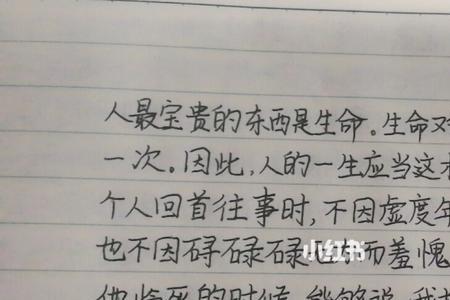 人最宝贵的东西是生命。生命对
一次。因此,人的一生应当这
个人回首往事时,不因虚度年
也不因碍碌碌 而羞愧
小红书
的时候 能够说